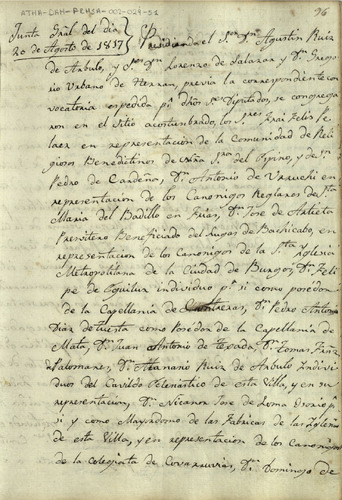 ATHA-DAH-FCHSA-002-029-51
96
Junta Gral del dia
20 de Agosto de 1817
Presidiendo el Sor Dn Agustin Ruiz
de Anbulo, y Sres Dn Lorenzo de Salazar y Dn Grego
rio Urbano de Herran, previa la correspondiente con
vocatoria espedida pr dhos Sres Diputados, se congrega
ron en el Sitio acostumbrado, los Sres Frai Felis Pe
laez en representacion de la Comunidad de Reli
giosos Benedictinos de Nra Sra del Espino, y de Sn
Pedro de Cardeña, Dn Antonio de Urruchi en
representacion de los Canonigos Reglares de Sta
Maria del Badillo en Frias, Dn Jose de Artieta
Presvitero Beneficiado del Lugar de Bachicabo, en
representacion de los Canonigos de la Sta Iglesia
Metropolitana de la Ciudad de Burgos, Dn Feli
pe de Eguiluz individuo pr si como poseedor
de la Capellania de Contreras, Dn Pedro Antonio
Diaz de tuesta como Posedor de la Capellania de
Mata, Dn Juan Antonio de tejada, Dn Tomas Frñz
Palomares, Dn Atanasio Ruiz de Anbulo Indivi
duos del Cavildo Eclesiastico de esta Villa, y en su
representacion, Dn Nicanor Jose de Loma Osorio pr
si y como Mayordomo de las Fabricas de las Iglesias
de esta Villa, y en representacion de los Canonigos
de la Colegiata de Covarruvias, Dn Domingo de